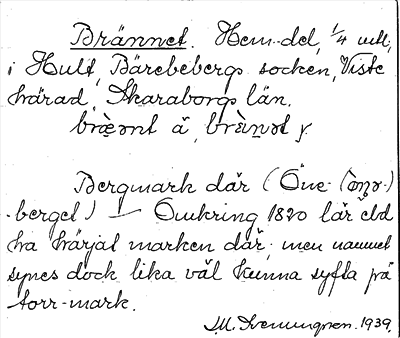 Brännet. Hem.-del, 1/4 mtl,
i Hult, Bärebergs socken, Viste
härad, Skaraborgs län.
bræ̀ənt å, bræ̀nət y.
Bergmark där (Öne-
-berget) – Omkring 1820 lär eld
ha härjat marken där; men namnet
synes dock lika väl kunna syfta på
torr-mark.
1939.